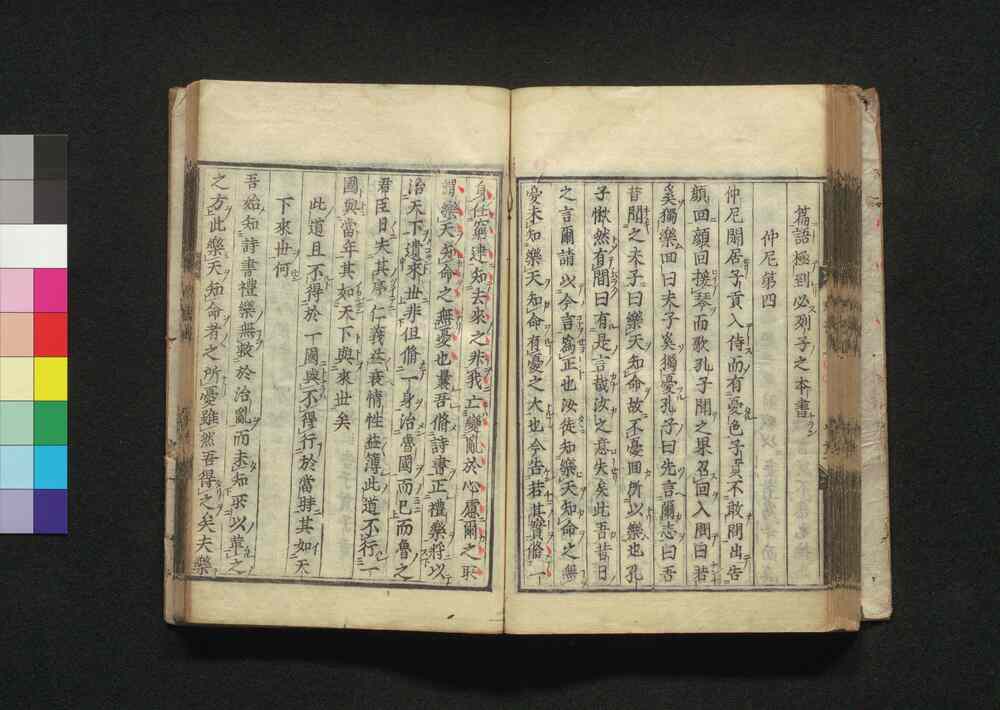 篇語極到必列子之本書
仲尼第四
仲尼閒居子貢入侍而有憂色子貢不敢問出告
顔回顔回援琴而歌孔子聞之果召回入問曰若
奚獨樂回曰夫子奚獨憂孔子曰先言爾志曰吾
昔聞之夫子曰樂天知命故不憂回所以樂也孔
子愀然有間曰有是言哉汝之意失矣此吾昔日
之言爾請以今言爲正也汝徒知樂天知命之無
憂未知樂天知命有憂之大也今告若其實脩一
身任窮達知去來之非我亡變亂於心慮爾之所
謂樂天知命之無憂也曩吾脩詩書正禮樂將以
治天下遺來世非但脩一身治魯國而已而魯之
君臣日失其序仁義益衰情性益薄此道不行一
國與當年其如天下與來世矣
此道且不得於一國與不得行於當時其如天
下來世何
吾始知詩書禮樂無救於治亂而未知所以革之
之方此樂天知命者之所憂雖然吾得之矣夫樂